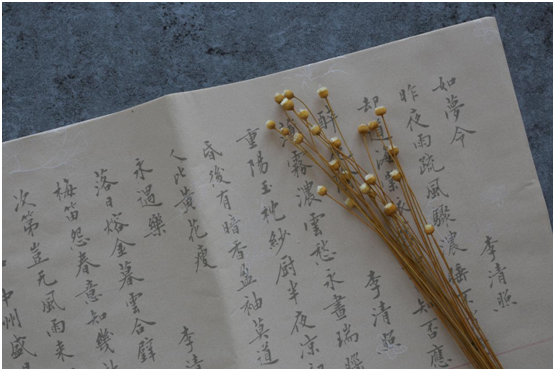 如夢令 李清照
昨夜雨疏風驟濃睡
却道海棠依 知否應
醉 李清照
霧濃雲愁永晝瑞腦
重陽玉枕紗厨半夜涼初
昏後有暗香盈袖莫道
人比黃花瘦
永遇樂 李清
落日熔金暮雲合璧
梅笛怨春意知幾
次第豈无風雨来
中州盛